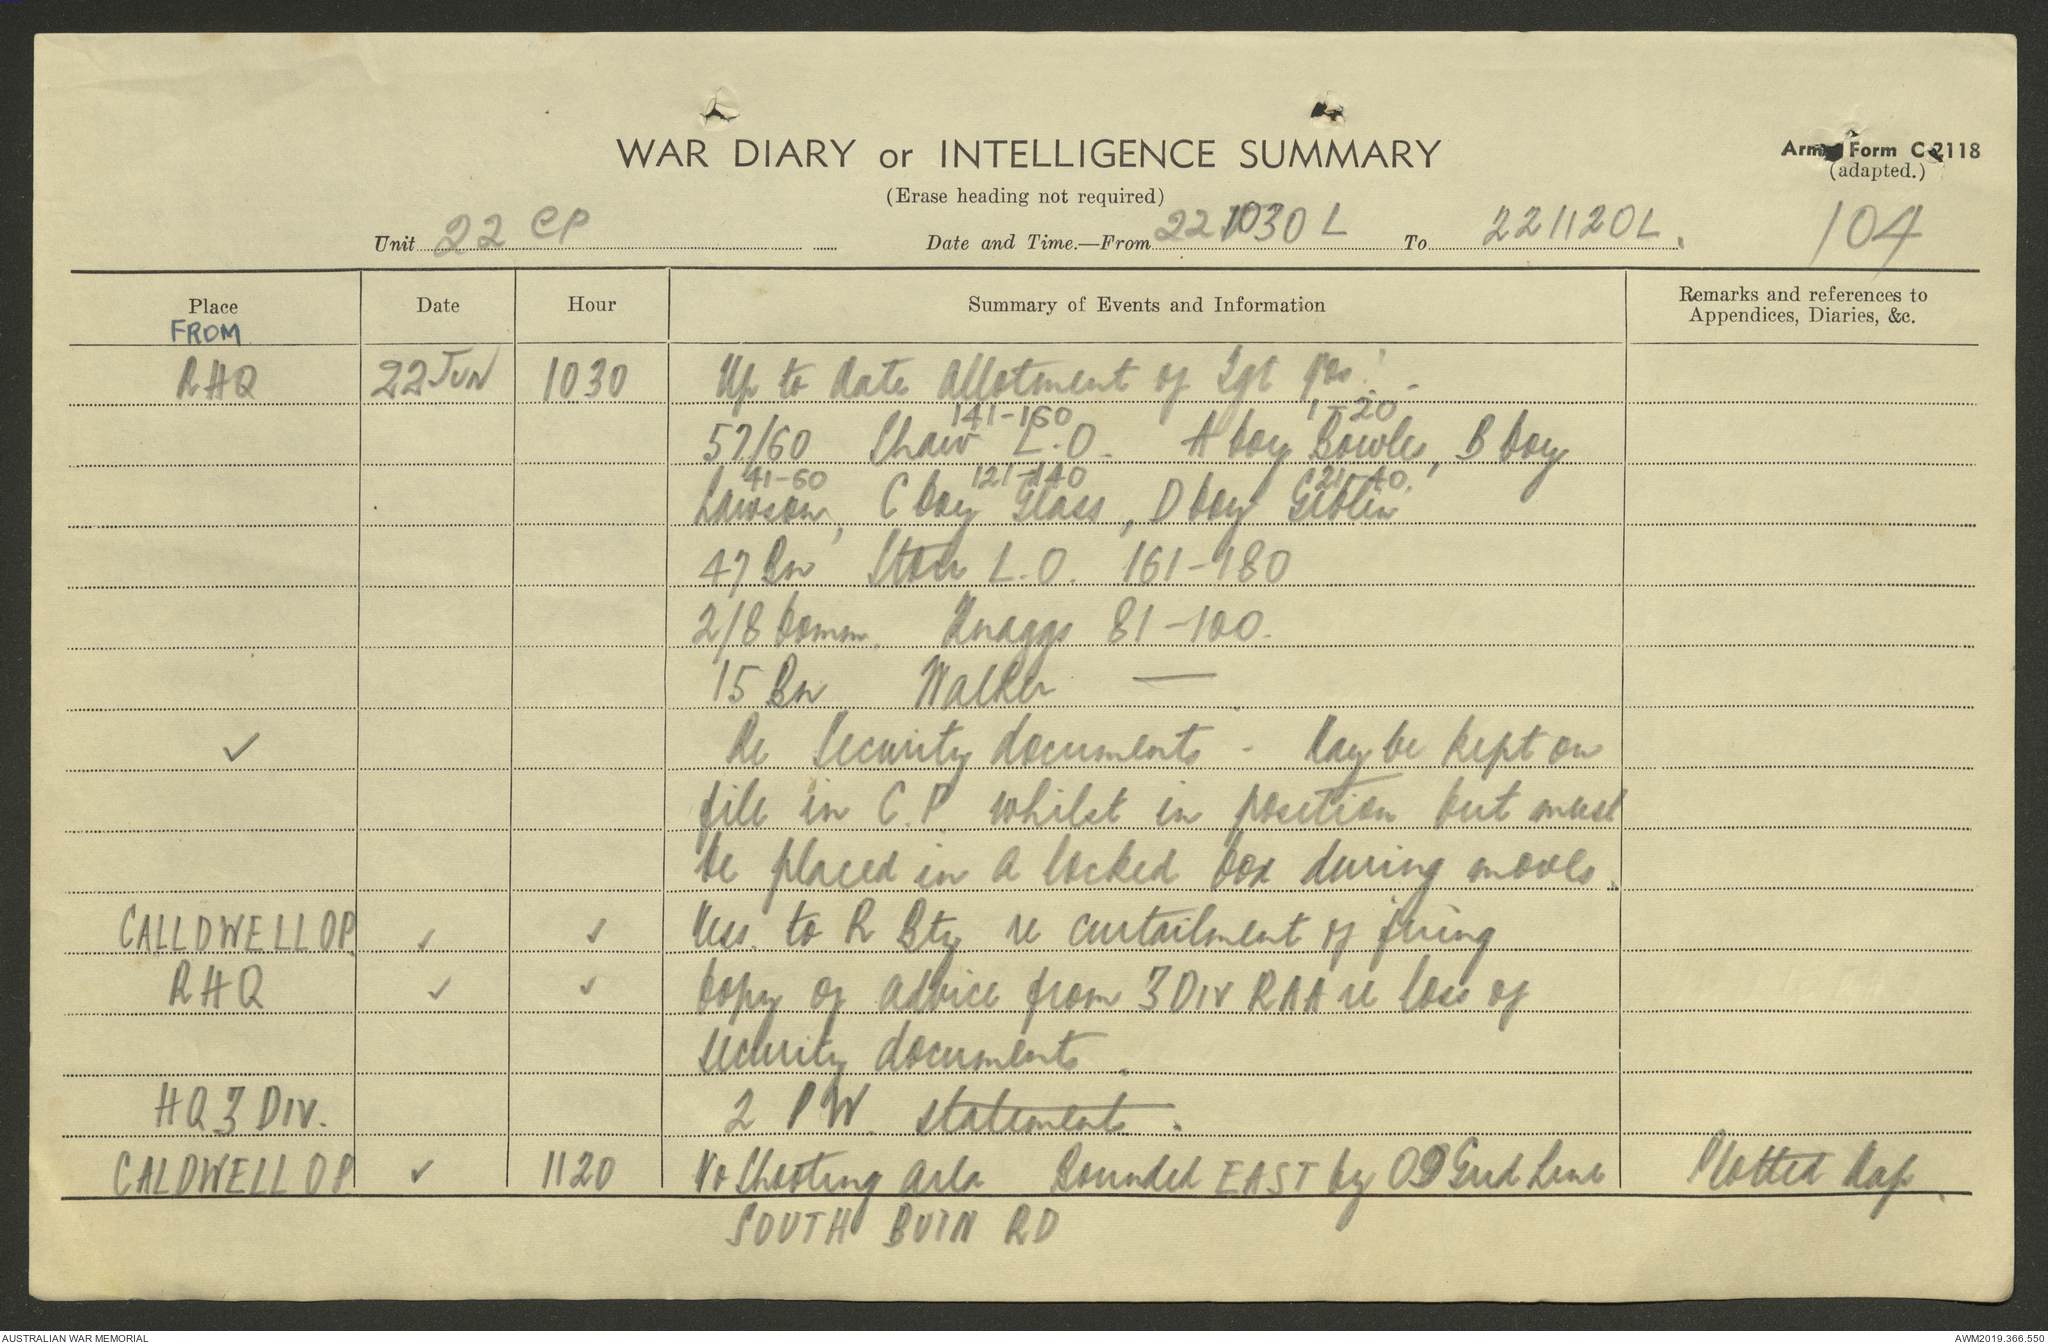 WAR DIARY or INTELLIGENCE SUMMARY
Army Form C 2118
(adapted.)
(Erase heading not required)
Unit 22 CP Date and Time.—From 221030 L To 221120L. 104
Place Date Hour Summary of Events and Information Remarks and references to Appendices, Diaries, &c.
FROM
RHQ 22 JUN 1030 Up to date allotment of Tgt Nos. -
141-160 1-20
57/60 Shaw L.O. A Coy Bowles, B Coy
41-60 121-140 21-40.
Lawson, C Coy Glass, D Coy Giblin
47 Bn L.O. 161-180
2/8 Comm. Knaggs 81-100.
15 Bn Walker —
✓ Re Security documents - May be kept on
file in C.P. whilst in position but must
be placed in a locked box during moves.
CALLDWELL OP ✓ ✓ Mess. to R Bty re curtailment of firing
RHQ ✓ ✓ Copy of advice from 3 DIV RAA re loss of
security documents.
HQ 3 DIV. 2 PW. statements.
CALDWELL OP ✓ 1120 No Shooting area Bounded EAST by 09 Grid Line Plotted Map.
SOUTH BUIN RD
AUSTRALIAN WAR MEMORIAL AWM2019.366.550